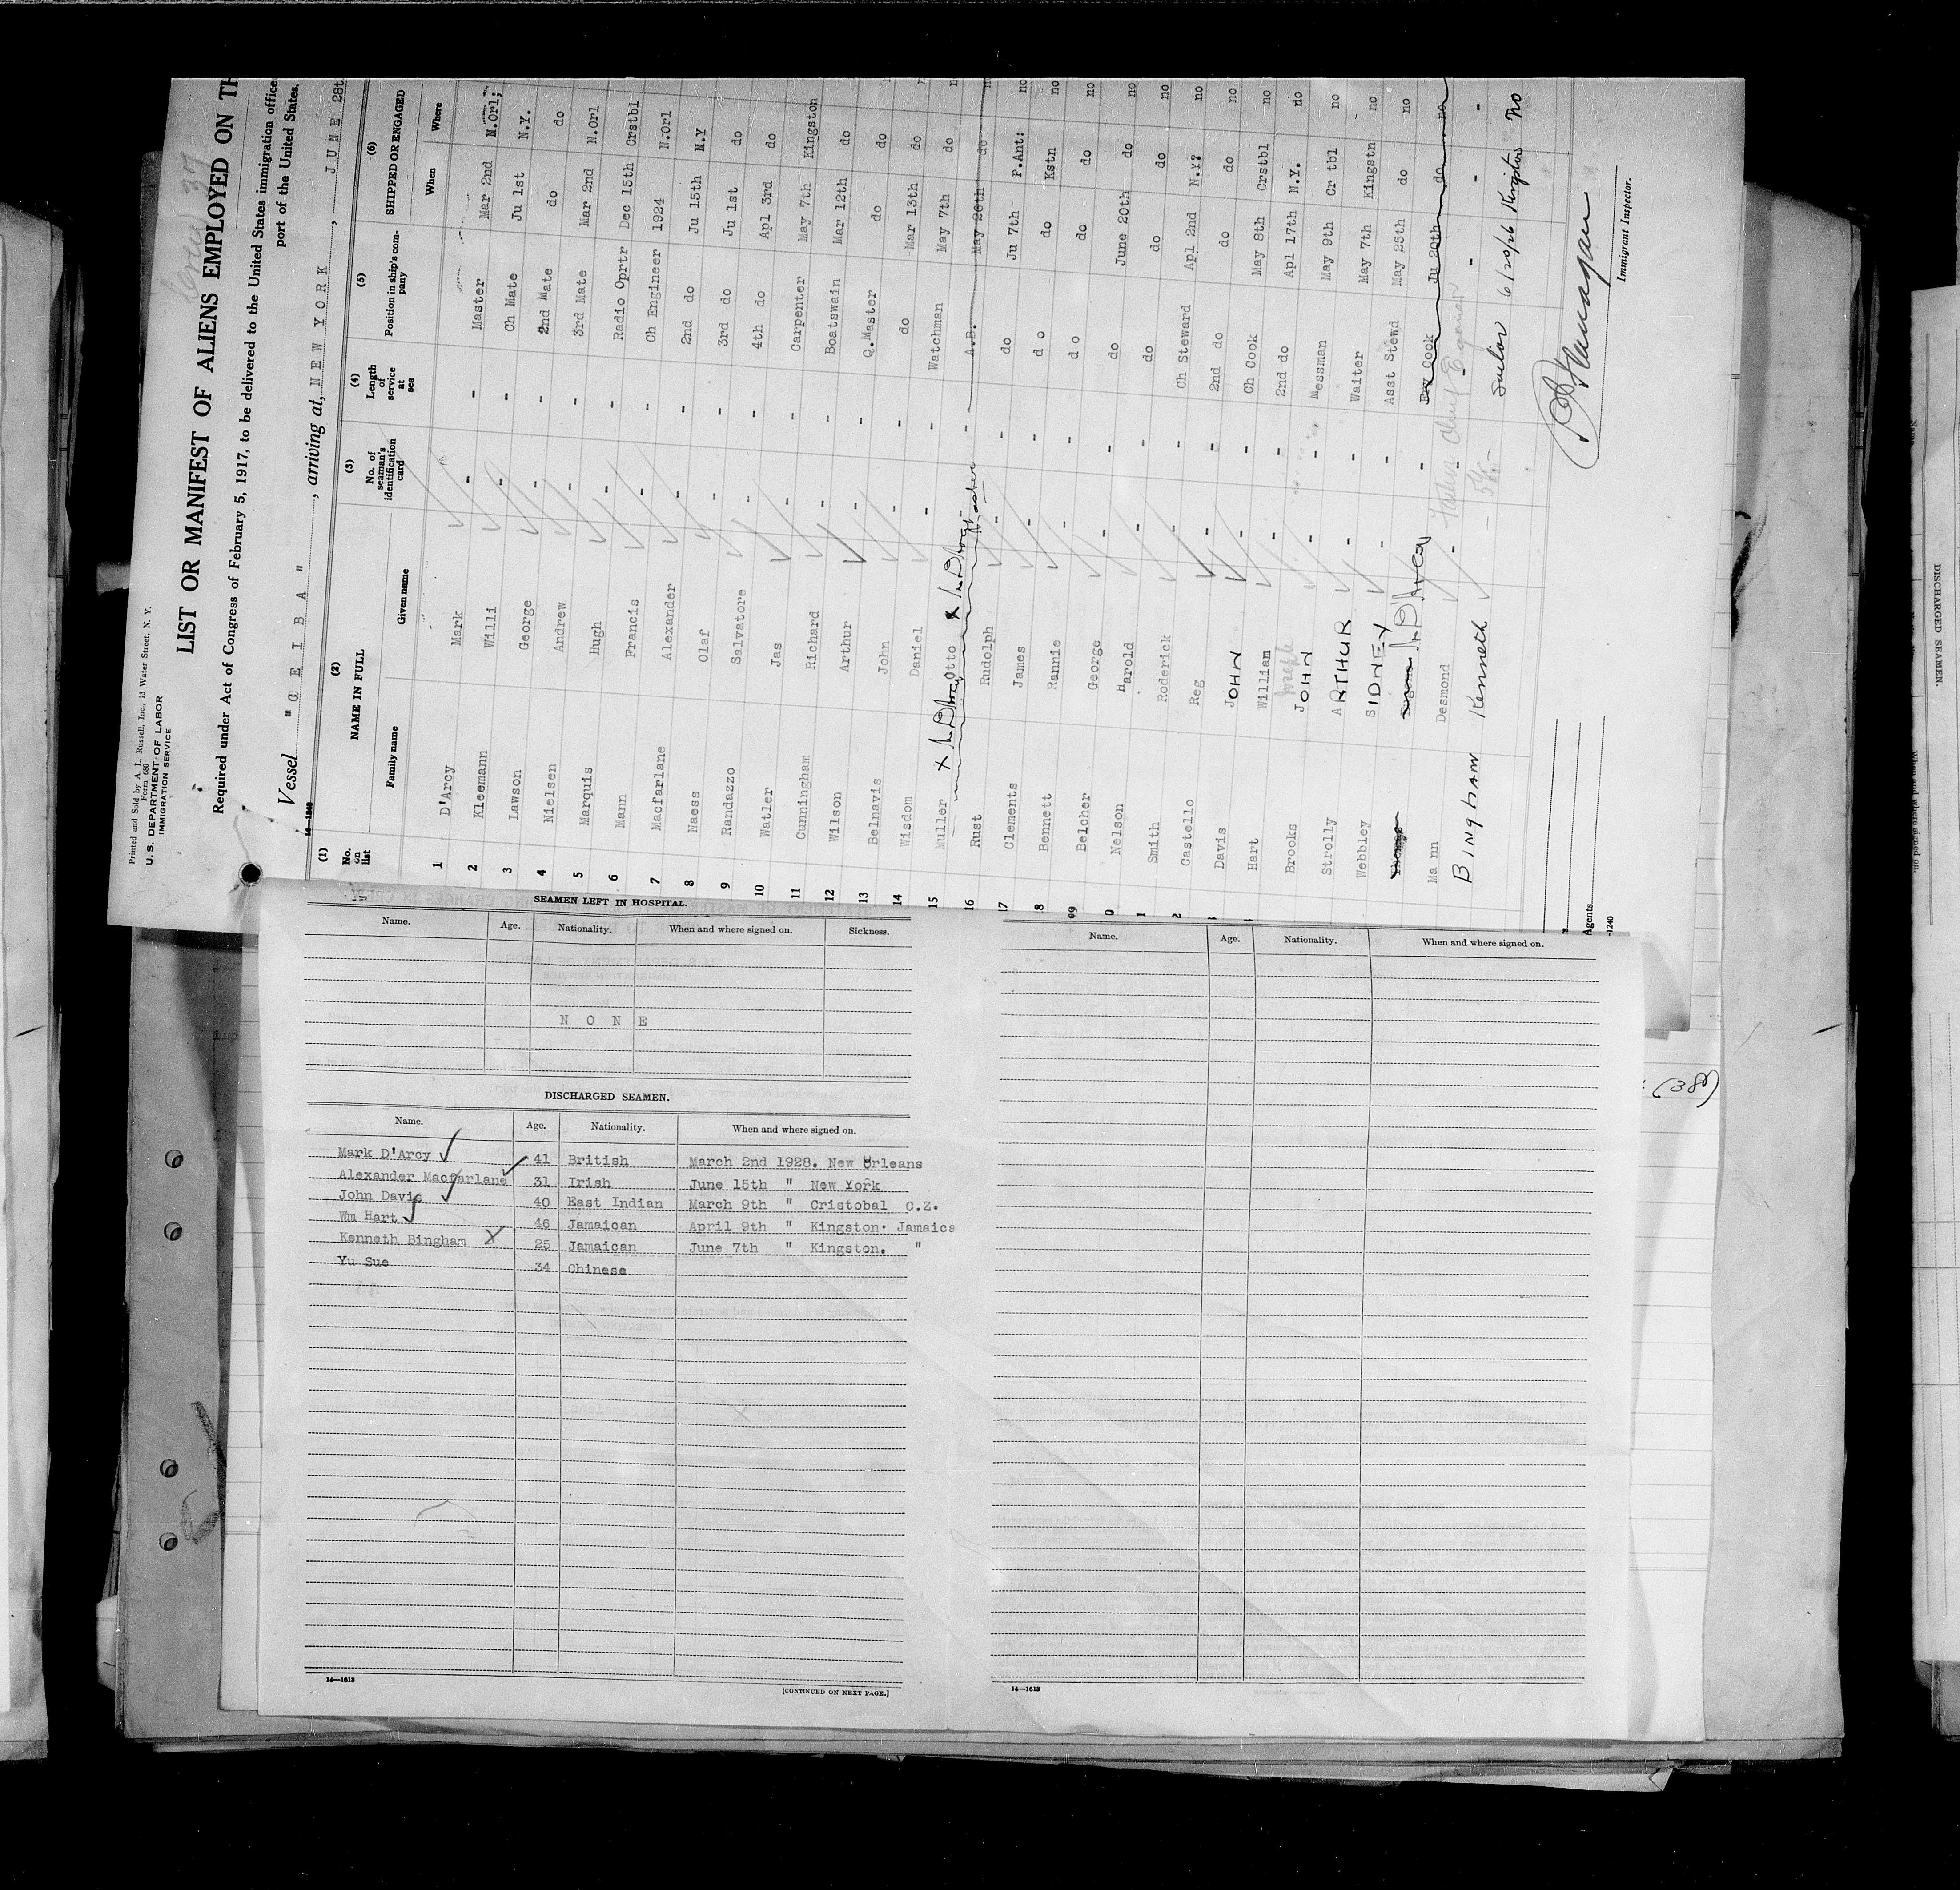 Printed and Sold by A. L. Russell, Inc., 13 Water Street, N. Y.
Form 680
U. S. DEPARTMENT OF LABOR
IMMIGRATION SERVICE
LIST OR MANIFEST OF ALIENS EMPLOYED ON TH
Required under Act of Congress of February 5, 1917, to be delivered to the United States immigration office
port of the United States.
Vessel "C E I B A", arriving at, NEW YORK, JUNE 28t
(1) (2) (3) (4) (5) (6)
No. on list NAME IN FULL No. of seaman's identification card Length of service at sea Position in ship's company SHIPPED OR ENGAGED
Family name Given name When Where
1 D'Arcy Mark - - Master Mar 2nd N.Orl;
2 Kleemann Willi - - Ch Mate Ju 1st N.Y.
3 Lawson George - - 2nd Mate do do
4 Nielsen Andrew - - 3rd Mate Mar 2nd N.Orl
5 Marquis Hugh - - Radio Oprtr Dec 15th Crstbl
6 Mann Francis - - Ch Engineer 1924 N.Orl
7 Macfarlane Alexander - - 2nd do Ju 15th N.Y
8 Naess Olaf - - 3rd do Ju 1st do
9 Randazzo Salvatore - - 4th do Apl 3rd do
10 Watler Jas - - Carpenter May 7th Kingston
11 Cunningham Richard - - Boatswain Mar 12th do
12 Wilson Arthur - - Q.Master do do
13 Belnavis John - - do Mar 13th do
14 Wisdom Daniel - - Watchman May 7th do
15 Muller Otto - A.B. May 26th do no
16 Rust Rudolph - - do Ju 7th P.Ant: no
17 Clements James - - do do Kstn no
18 Bennett Rannie - - do do do no
19 Belcher George - - do June 20th do no
0 Nelson Harold - - do do do no
1 Smith Roderick - - Ch Steward Apl 2nd N.Y? no
2 Castello Reg - - 2nd do do do no
Davis JOHN - - Ch Cook May 8th Crstbl no
Hart William - - 2nd do Apl 17th N.Y. no
Brooks JOHN - - Messman May 9th Cr tbl no
Strolly ARTHUR - - Waiter May 7th Kingstn no
Webbley SIDNEY - - Asst Stewd May 25th do no
Cook Ju 20th do no
Ma nn Desmond
BINGHAM Kenneth Sailor 6/20/26 Kingston no
Immigrant Inspector.
Agents
-1240
SEAMEN LEFT IN HOSPITAL.
Name. Age. Nationality. When and where signed on. Sickness.
N O N E
DISCHARGED SEAMEN.
Name. Age. Nationality. When and where signed on.
Mark D'Arcy 41 British March 2nd 1928. New Orleans
Alexander Macfarlane 31 Irish June 15th " New York
John Davis 40 East Indian March 9th " Cristobal C.Z.
Wm Hart 46 Jamaican April 9th " Kingston. Jamaica
Kenneth Bingham X 25 Jamaican June 7th " Kingston. "
Yu Sue 34 Chinese
14—1613
[CONTINUED ON NEXT PAGE.]
Name. Age. Nationality. When and where signed on.
14—1613
(38)
DISCHARGED SEAMEN.
Name.
When and where signed on.